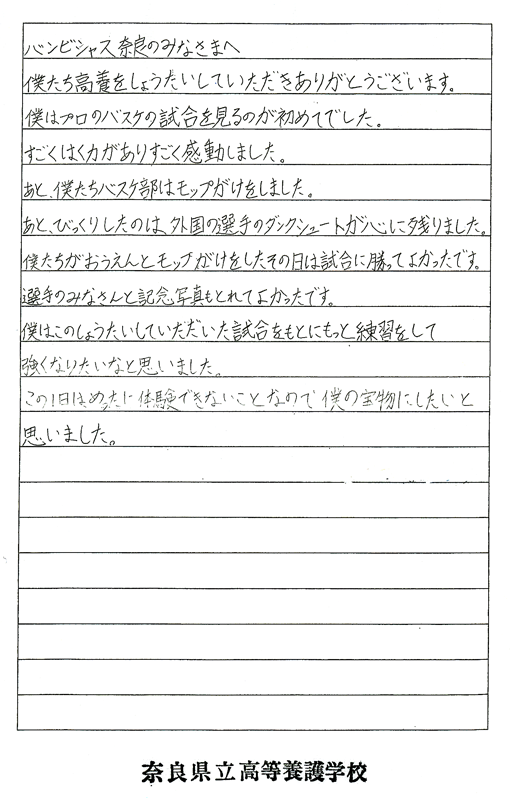 バンビシャス奈良のみなさまへ
僕たち高養をしょうたいしていただきありがとうございます。
僕はプロのバスケの試合を見るのが初めてでした。
すごくはく力がありすごく感動しました。
あと、僕たちバスケ部はモップがけをしました。
あと、びっくりしたのは、外国の選手のダンクシュートが心に残りました。
僕たちがおうえんとモップがけをしたその日は試合に勝ってよかったです。
選手のみなさんと記念写真もとれてよかったです。
僕はこのしょうたいしていだだいた試合をもとにもっと練習をして
強くなりたいなと思いました。
この1日はめったに体験できないことなので僕の宝物にしたいと
思いました。
奈良県立高等養護学校